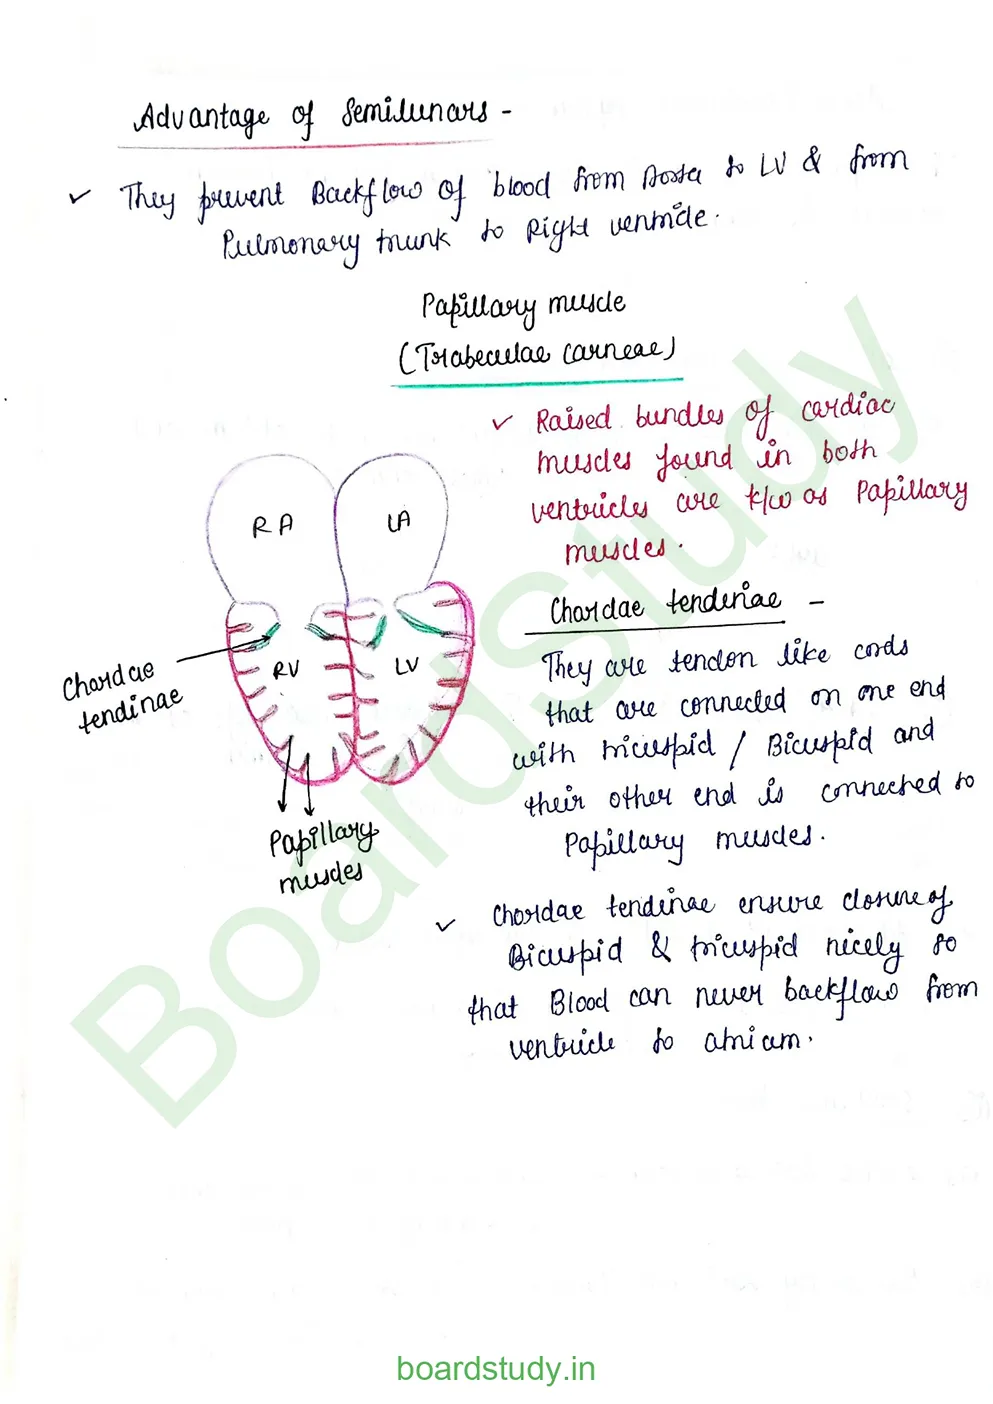 Advantage of Semilunars -
✓ They prevent Backflow of blood from Aorta to LV & from
Pulmonary trunk to Right ventricle.
Papillary muscle
(Trabeculae carneae)
✓ Raised bundles of cardiac
muscles found in both
ventricles are k/w as Papillary
muscles.
RA
LA
RV
LV
Chordae
tendinae
Papillary
muscles
Chordae tendinae -
They are tendon like cords
that are connected on one end
with tricuspid / Bicuspid and
their other end is connected to
Papillary muscles.
✓ Chordae tendinae ensure closure of
Bicuspid & tricuspid nicely so
that Blood can never backflow from
ventricle to atrium.
BoardStudy
boardstudy.in